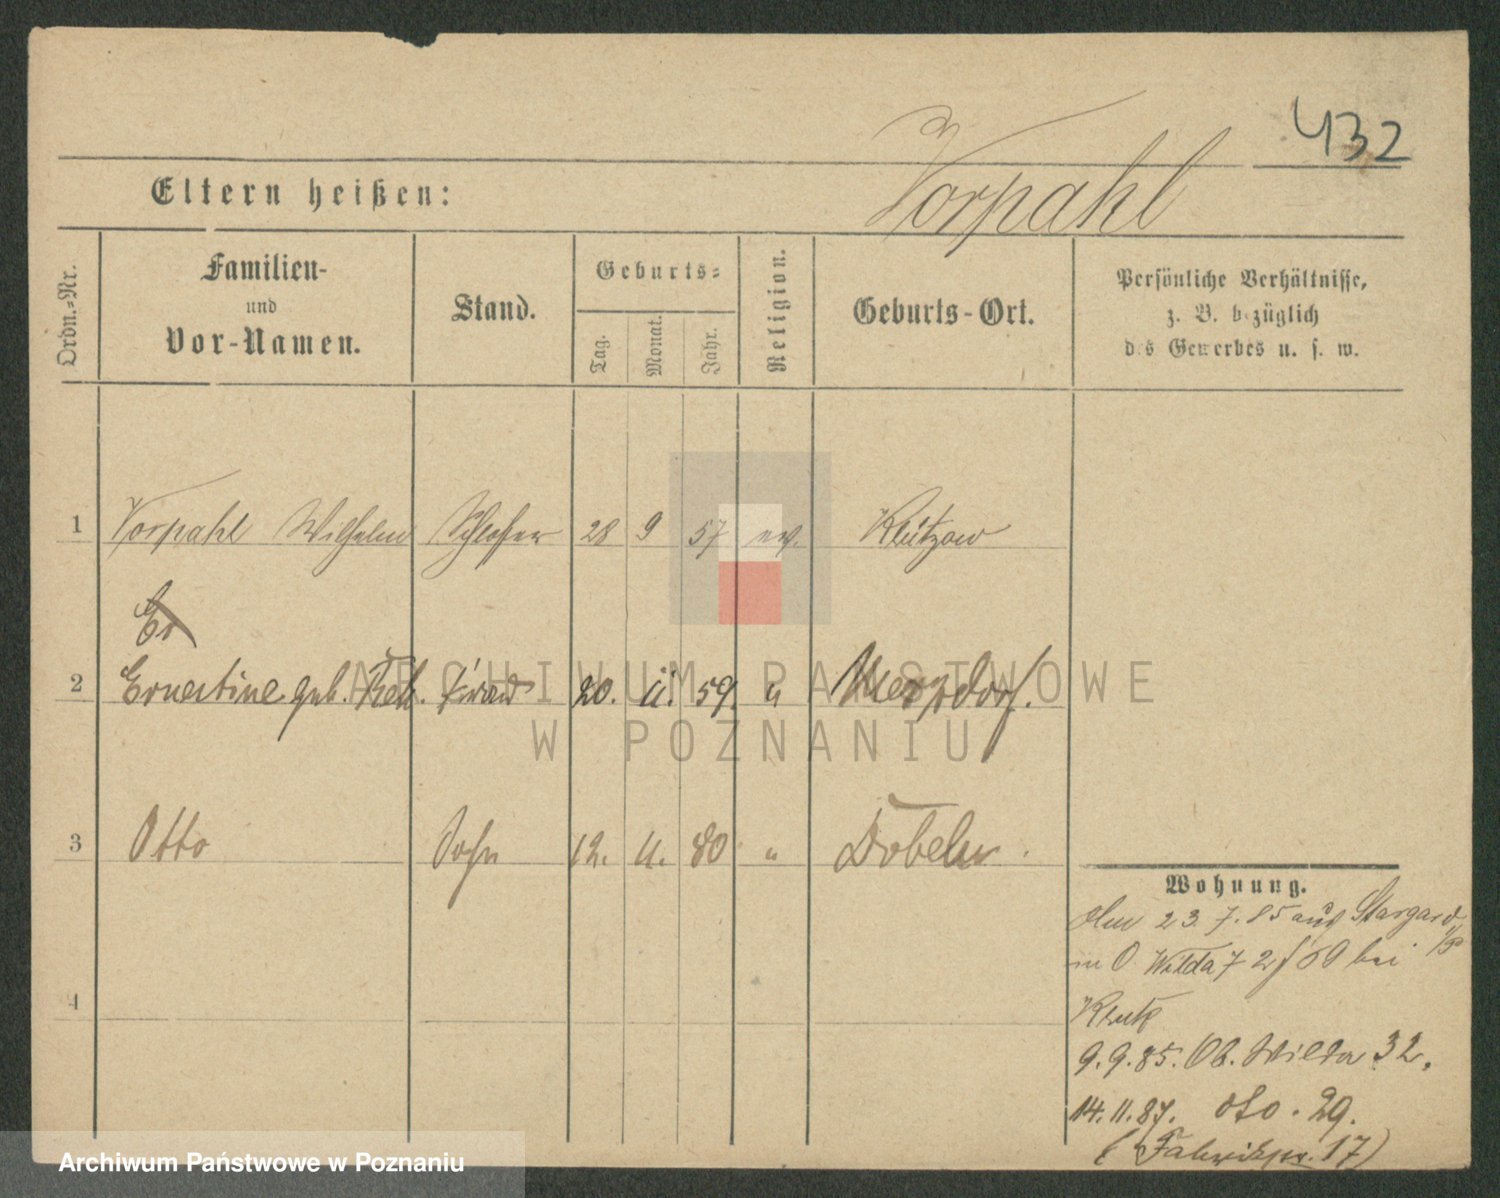 432
Vorpahl
Eltern heißen:
Ordn.-Nr.
Familien-
und
Vor-Namen.
Stand.
Geburts-
Tag.
Monat.
Jahr.
Religion.
Geburts-Ort.
Persönliche Verhältnisse,
z. B. bezüglich
des Gewerbes u. s. w.
1 Vorpahl Wilhelm Schlosser 28 9 57 ev. Klützow
Er
2 Ernestine geb. 20. 11. 59. "
3 Otto Sohn 12. 11. 80 " Döbeln
4
Wohnung.
23. 7. 85 aus Stargard
i/P
in O. Wilda 72 bei
9. 9. 85. Ob. Wilda 32.
14. 11. 87. dto. 29.
(Fabrikstr. 17)
ARCHIWUM PAŃSTWOWE
W POZNANIU
Archiwum Państwowe w Poznaniu